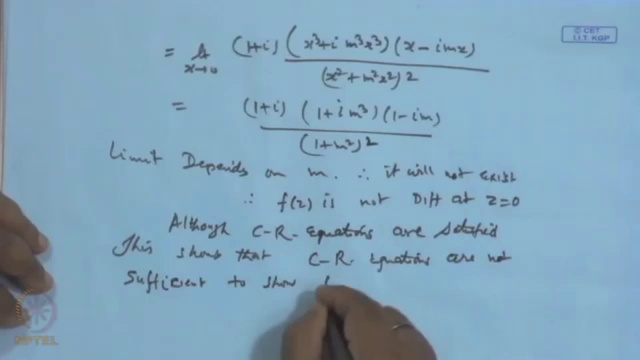 © CET
I.I.T. KGP
= lt x→0 (1+i) (x³+i m³x³) (x-imx) / (x²+m²x²)²
= (1+i) (1+im³) (1-im) / (1+m²)²
Limit Depends on m. ∴ it will not exist
∴ f(z) is not Diff at z=0
Although C-R- Equations are satisfied
This shows that C-R. Equations are not
Sufficient to show
NPTEL